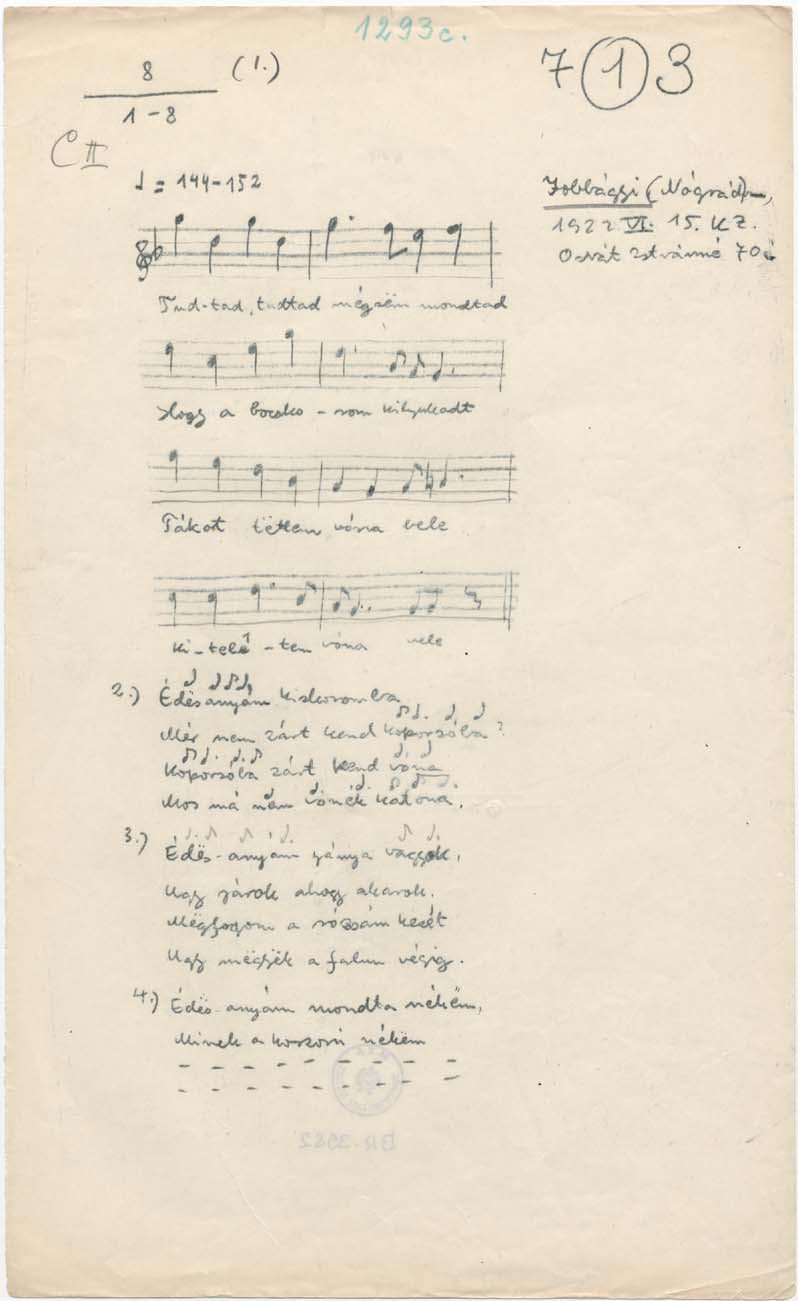 1293c.
8 (1.)
7 1 3
1-8
C II
♩ = 144-152
Jobbágyi (Nógrád),
1922 VI. 15. KZ.
Osvát Istvánné 70é
Tud-tad, tudtad mégsëm mondtad
Hogy a bocsko-rom kilyukadt
Tákot tëttem vóna bele
Ki-telê-tem vóna vele
2.) Édësanyám kiskoromba
Mér nem zárt kend koporsóba?
Koporsóba zárt kend vóna
Mos má nem vónék katona.
3.) Édës-anyám jánya vagyok,
Ugy járok ahogy akarok.
Mëgfogom a rózsám kezét
Ugy mëgyëk a falun végig.
4.) Édës-anyám mondta nékëm,
Minek a koszorú nékëm
BR-3582